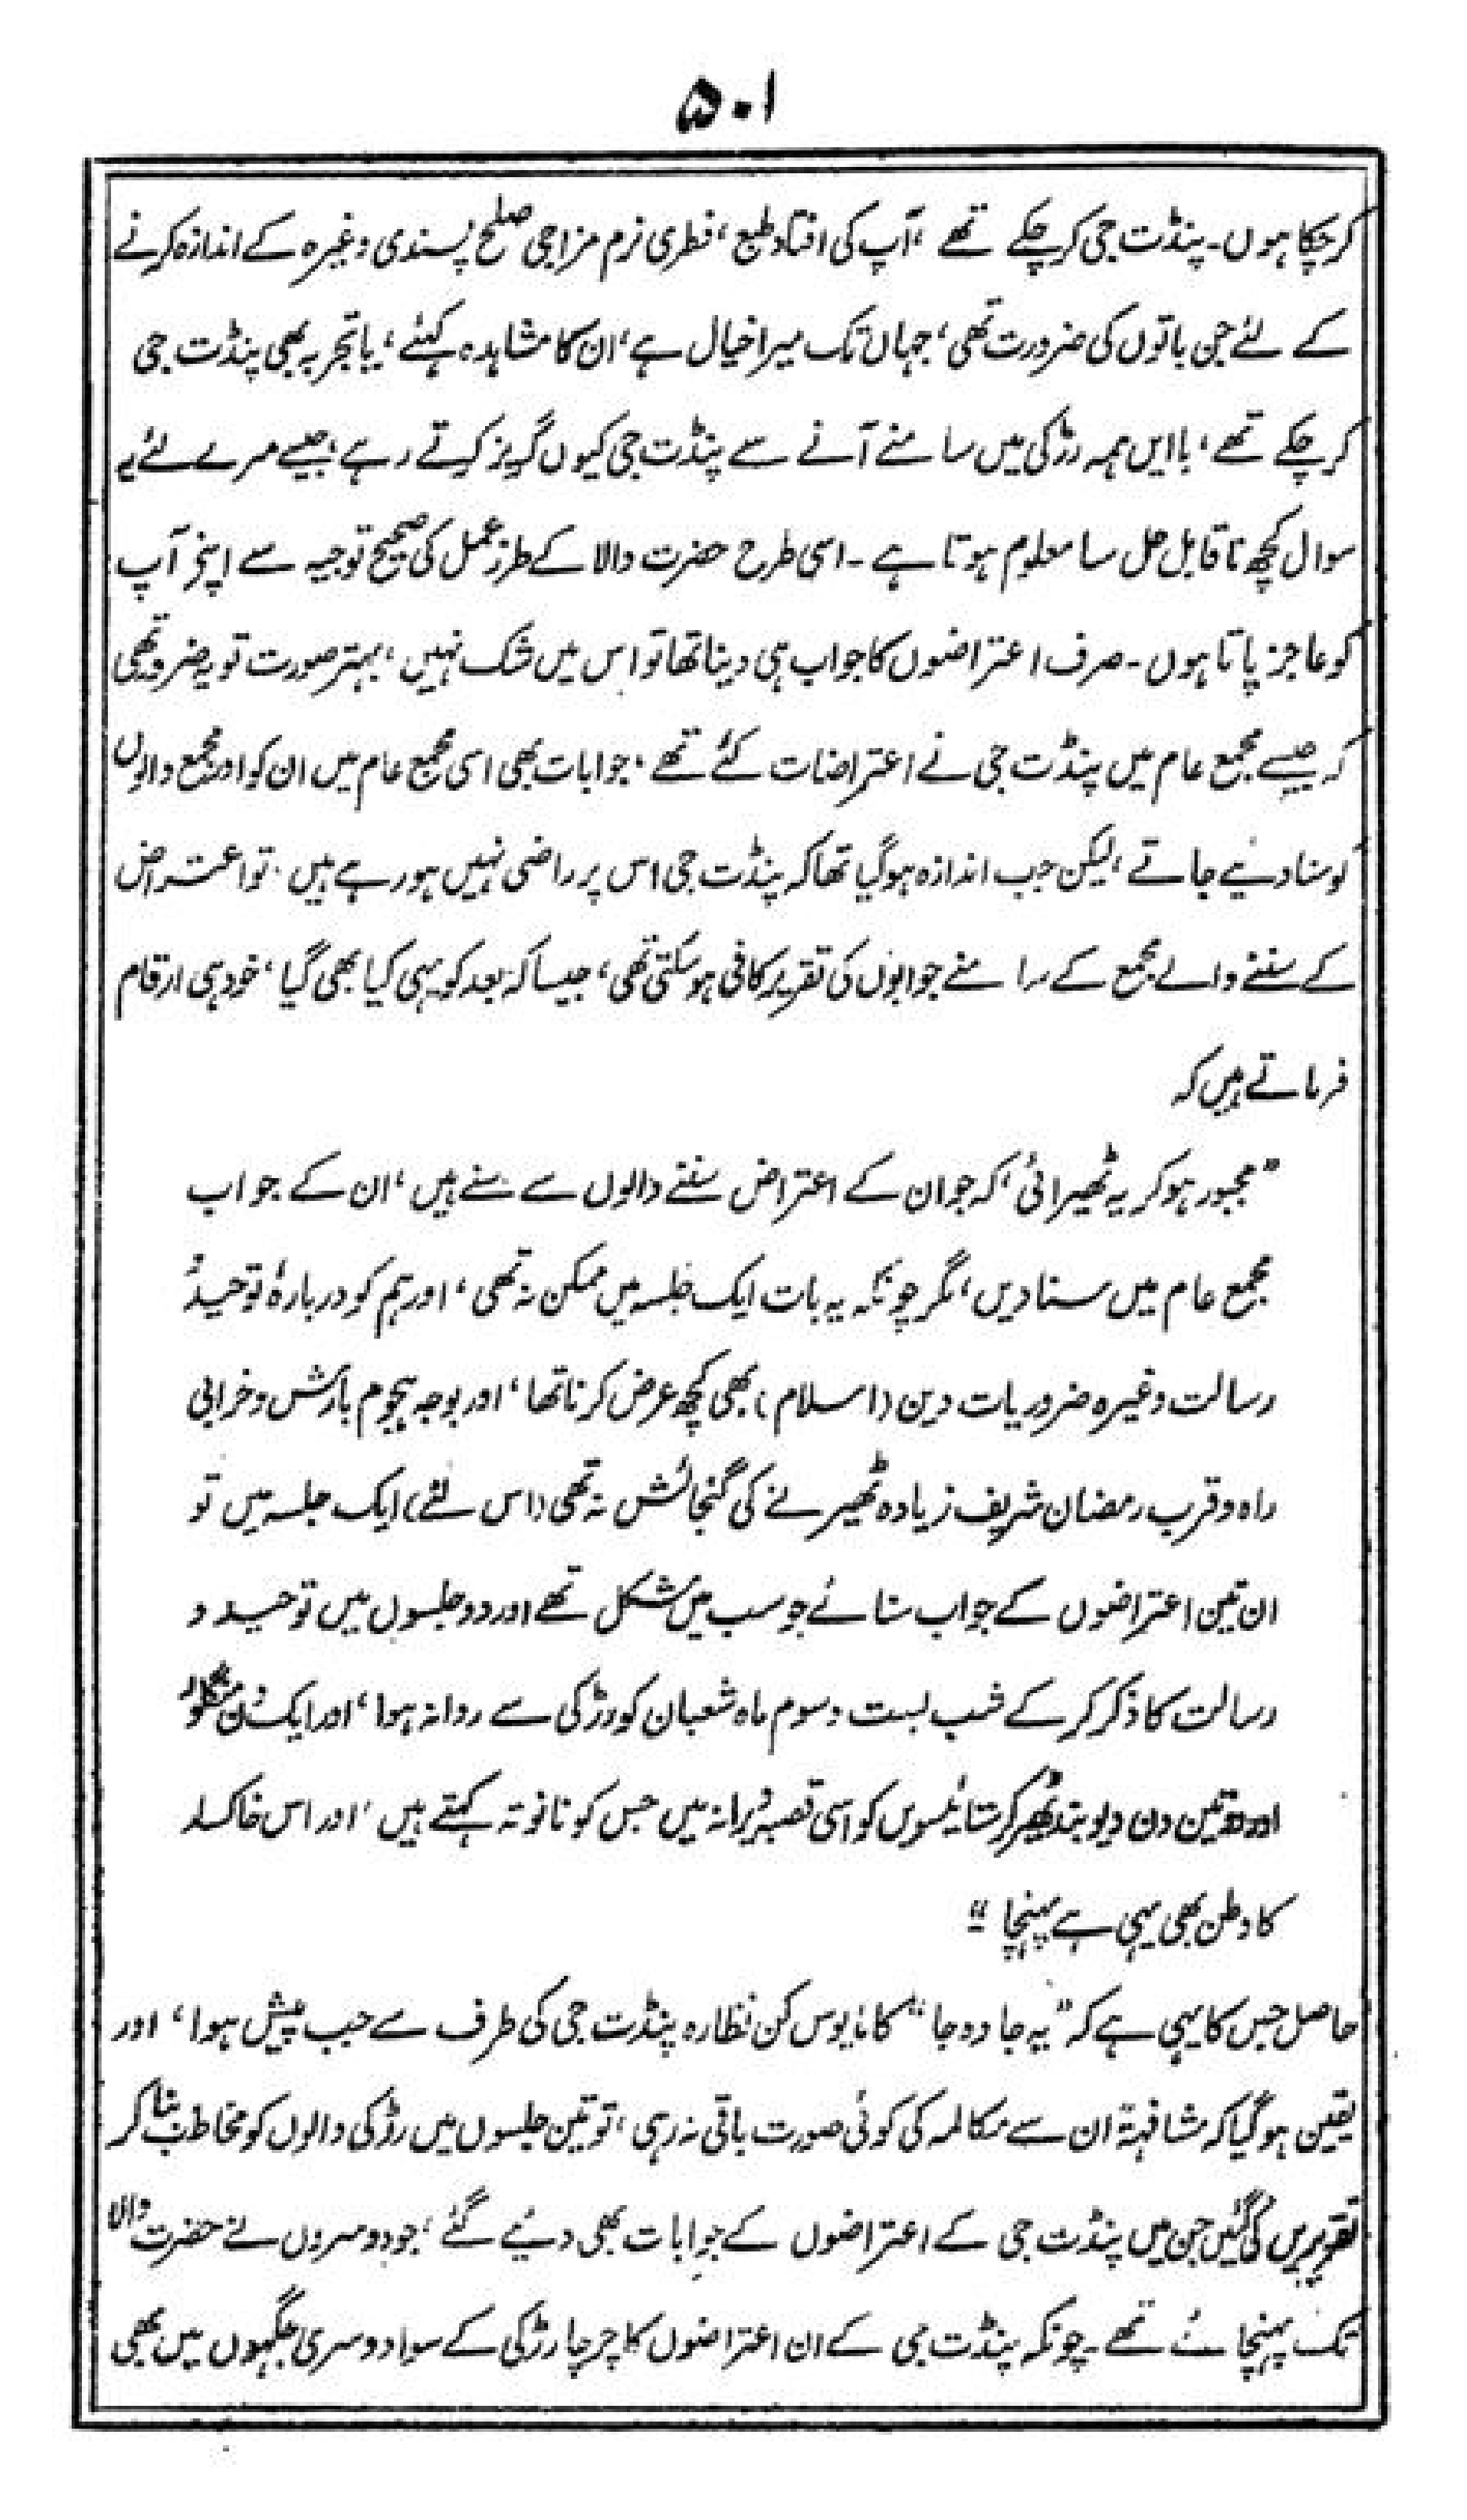 ۵۰۱
کرچکا ہوں۔ پنڈت جی کرچکے تھے، آپ کی افتاد طبع، فطری نرم مزاجی صلح پسندی وغیرہ کے اندازہ کرنے
کے لئے جن باتوں کی ضرورت تھی، جہاں تک میرا خیال ہے، ان کا مشاہدہ کہئے، یا تجربہ بھی پنڈت جی
کرچکے تھے، با ایں ہمہ رڑکی میں سامنے آنے سے پنڈت جی کیوں گریز کرتے رہے، جیسے مرے لئے یہ
سوال کچھ ناقابل حل سا معلوم ہوتا ہے۔ اسی طرح حضرت والا کے طرز عمل کی صحیح توجیہ سے اپنے آپ
کو عاجز پاتا ہوں۔ صرف اعتراضوں کا جواب ہی دینا تھا تو اس میں شک نہیں، بہتر صورت تو یہ ضرور تھی
کہ جیسے مجمع عام میں پنڈت جی نے اعتراضات کئے تھے، جوابات بھی اسی مجمع عام میں ان کو اور مجمع والوں
کو سنا دئیے جاتے، لیکن جب اندازہ ہوگیا تھا کہ پنڈت جی اس پر راضی نہیں ہو رہے ہیں، تو اعتراض
کے سننے والے مجمع کے سامنے جوابوں کی تقریر کافی ہوسکتی تھی، جیسا کہ بعد کو یہی کیا بھی گیا، خود ہی ارقام
فرماتے ہیں کہ
”مجبور ہوکر یہ ٹھیرائی، کہ جو ان کے اعتراض سننے والوں سے سنے ہیں، ان کے جواب
مجمع عام میں سنادیں، مگر چونکہ یہ بات ایک جلسہ میں ممکن نہ تھی، اور ہم کو دربارہٴ توحید و
رسالت وغیرہ ضروریات دین (اسلام) بھی کچھ عرض کرنا تھا، اور بوجہ ہجوم بارش و خرابی
راہ و قرب رمضان شریف زیادہ ٹھیرنے کی گنجائش نہ تھی (اس لئے) ایک جلسہ میں تو
ان تین اعتراضوں کے جواب سنائے جو سب میں مشکل تھے اور دو جلسوں میں توحید و
رسالت کا ذکر کر کے شب بست و سوم ماہ شعبان کو رڑکی سے روانہ ہوا، اور ایک دن منگلور
اور دو تین دن دیوبند ٹھیر کر ستائیسویں کو اسی قصبہ ویرانہ میں جس کو نانوتہ کہتے ہیں، اور اس خاکسار
کا وطن بھی یہی ہے پہنچا“
حاصل جس کا یہی ہے کہ ”یہ جا وہ جا“ کا مایوس کن نظارہ پنڈت جی کی طرف سے جب پیش ہوا، اور
یقین ہوگیا کہ مشافہۃ ان سے مکالمہ کی کوئی صورت باقی نہ رہی، تو تین جلسوں میں رڑکی والوں کو مخاطب بنا کر
تقریریں کی گئیں جن میں پنڈت جی کے اعتراضوں کے جوابات بھی دئیے گئے، جو دوسروں نے حضرت والا
تک پہنچائے تھے۔ چونکہ پنڈت جی کے ان اعتراضوں کا چرچا رڑکی کے سوا دوسری جگہوں میں بھی